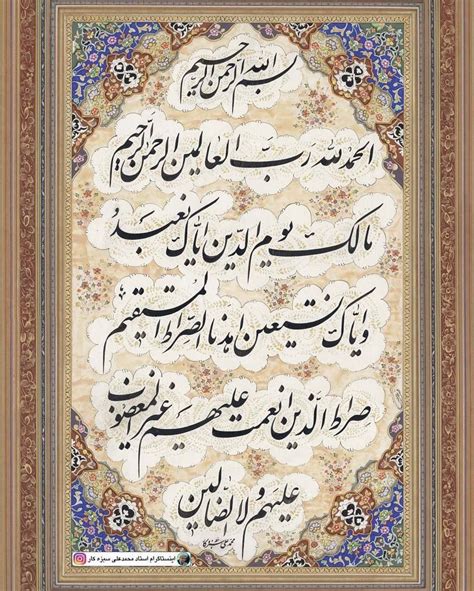 بسم الله الرحمن الرحیم
الحمدلله رب العالمین الرحمن الرحیم
مالک یوم الدین ایاک نعبد
و ایاک نستعین اهدنا الصراط المستقیم
صراط الذین انعمت علیهم غیر المغضوب
علیهم ولا الضالین
اینستاگرام استاد محمدعلی سبزه کار